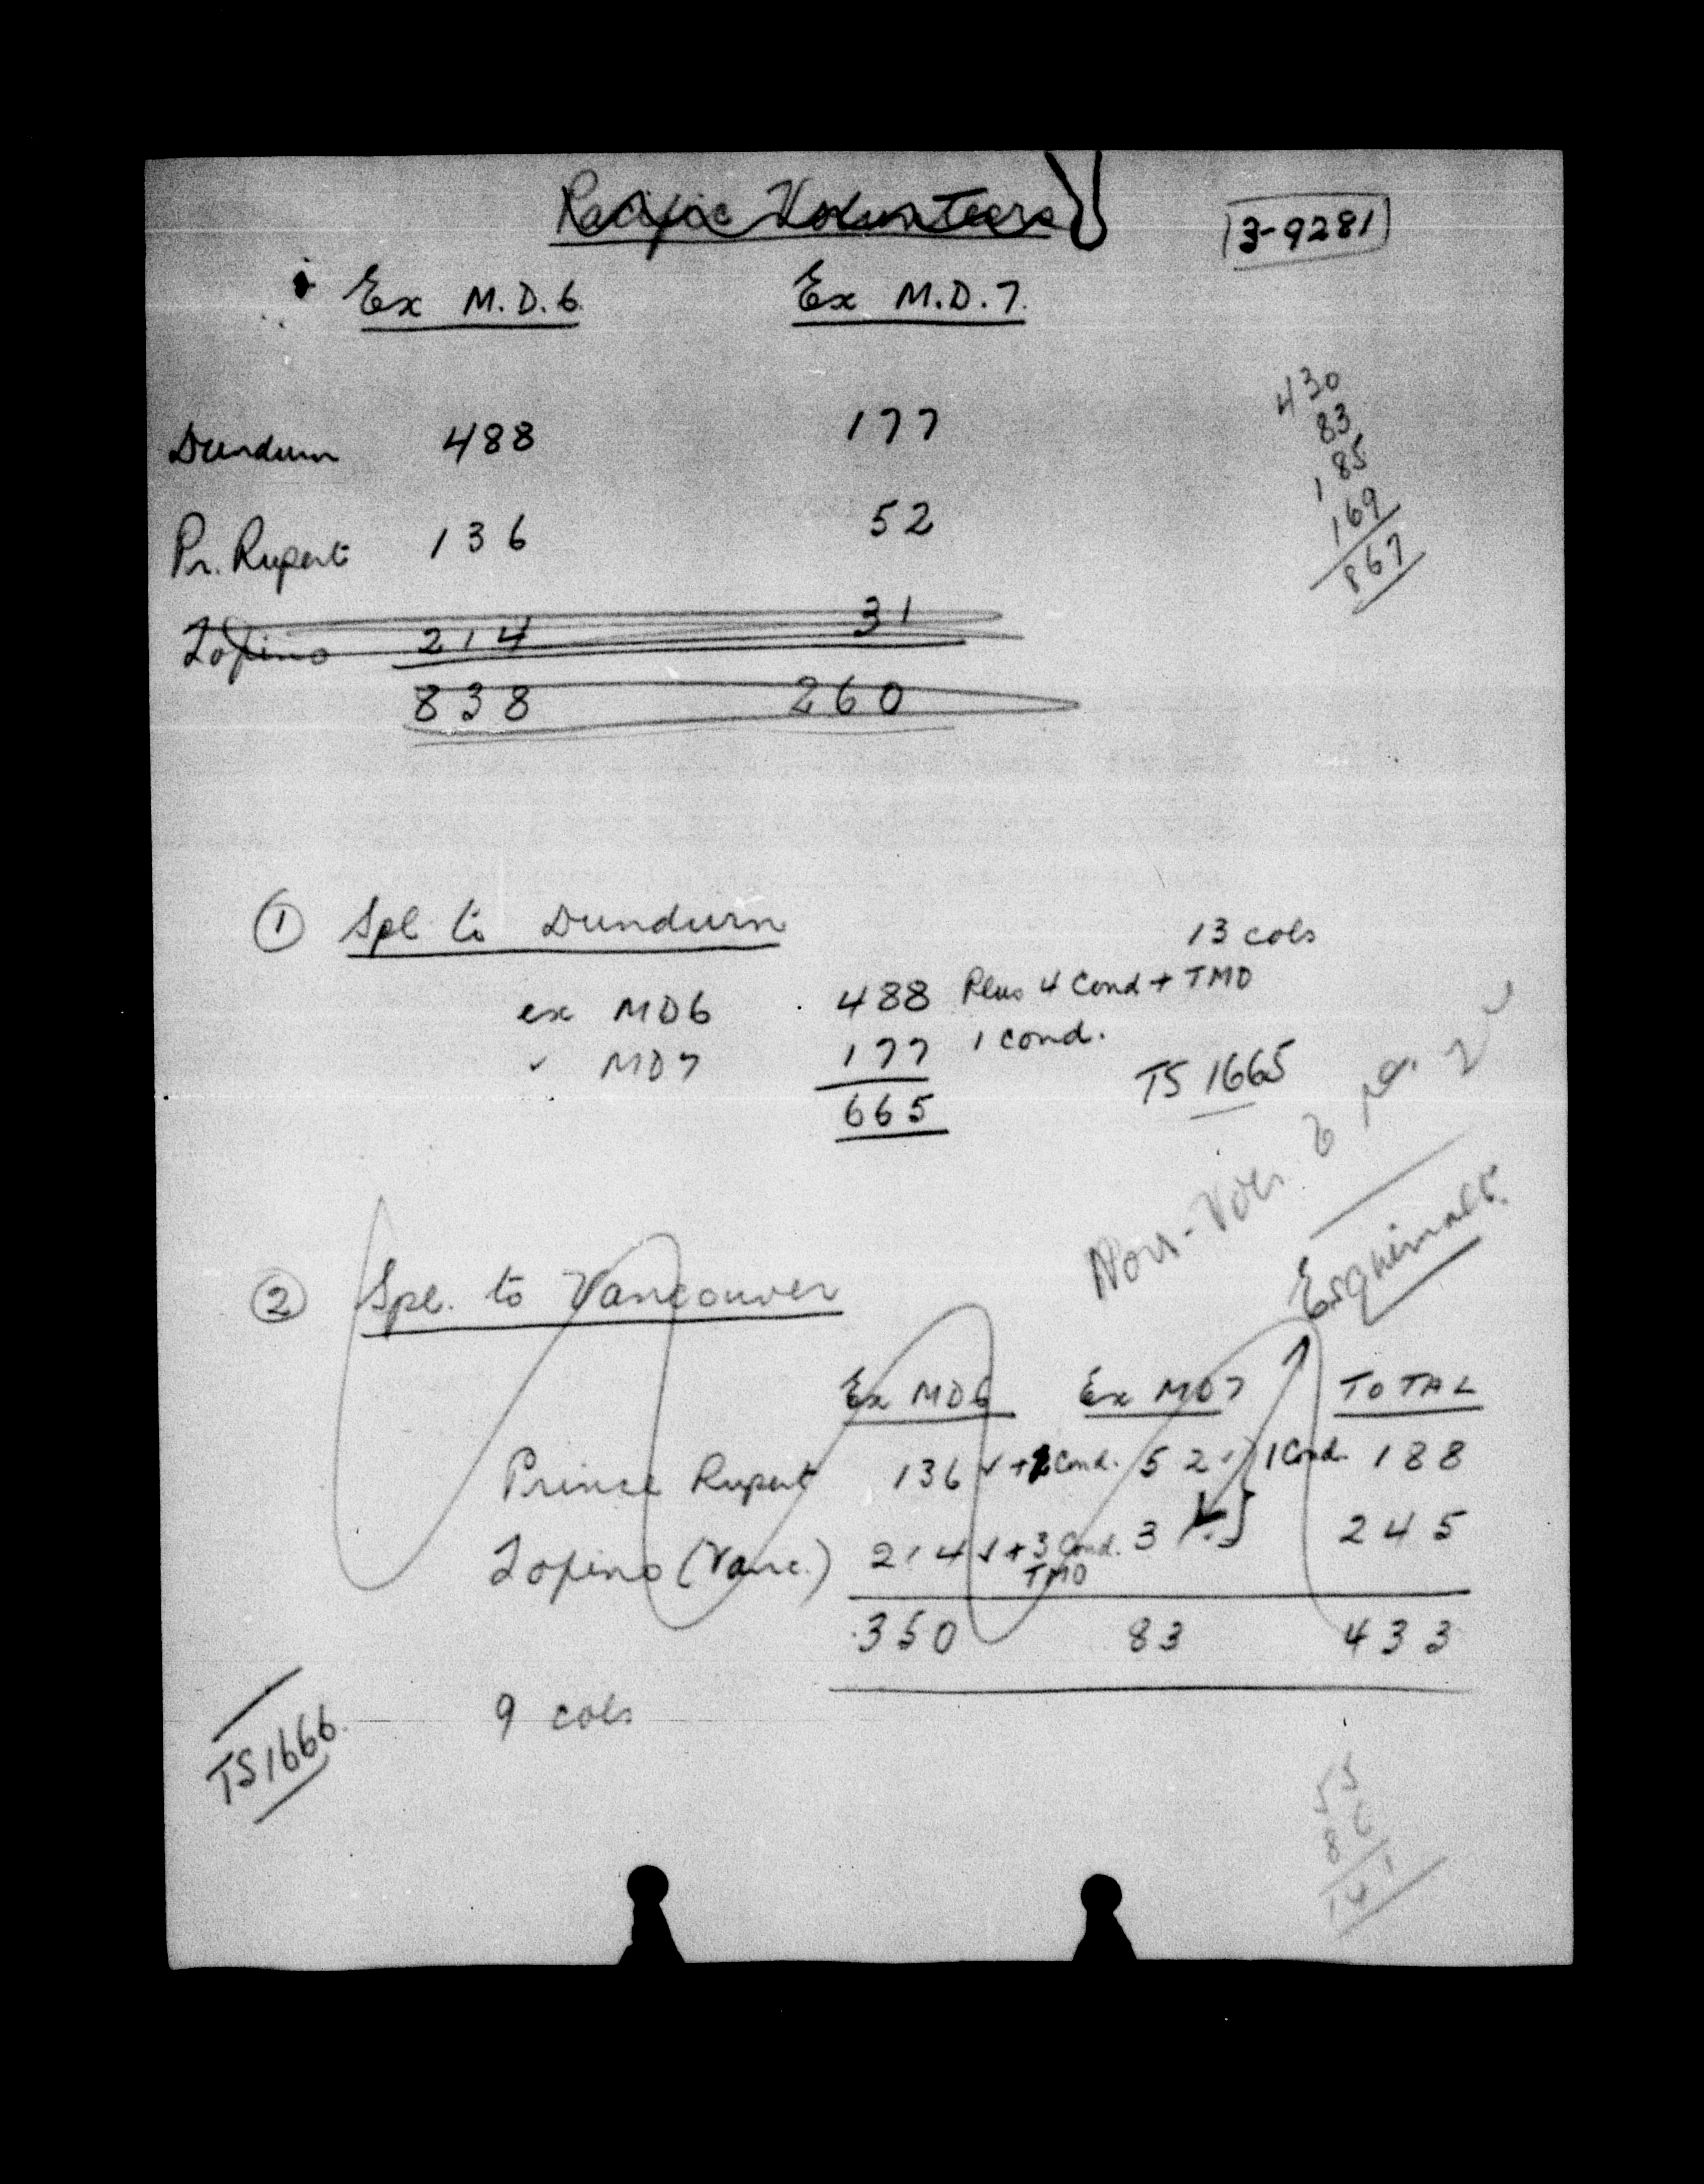 Pacific Volunteers
3-9281
Ex M.D.6. Ex M.D.7.
Dundurn 488 177
Pr. Rupert 136 52
Tofino 214 31
838 260
430
83
185
169
867
① Spl. to Dundurn
13 cols
ex MD6 488 Plus 4 Cond + TMO
" MD7 177 1 cond.
665
TS 1665
Non-Vols.
Esquimalt.
② Spl. to Vancouver
Ex MD6 Ex MD7 TOTAL
Prince Rupert 136 ✓ + 2 Cond. 52 ✓ } 1 Cond. 188
Tofino (Vanc.) 214 ✓ + 3 Cond. TMO 31 } 245
350 83 433
9 cols
TS 1666.
55
86
141